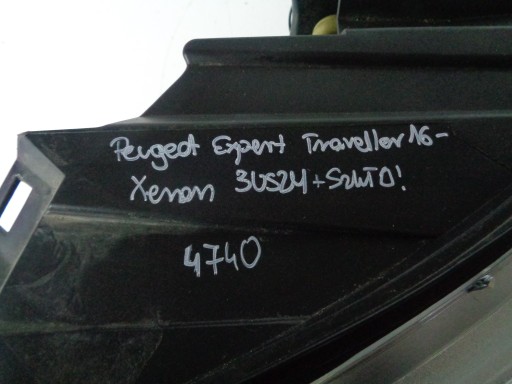 Peugeot Expert Traveller 16-
Xenon 3US24+SzkłO!
4740